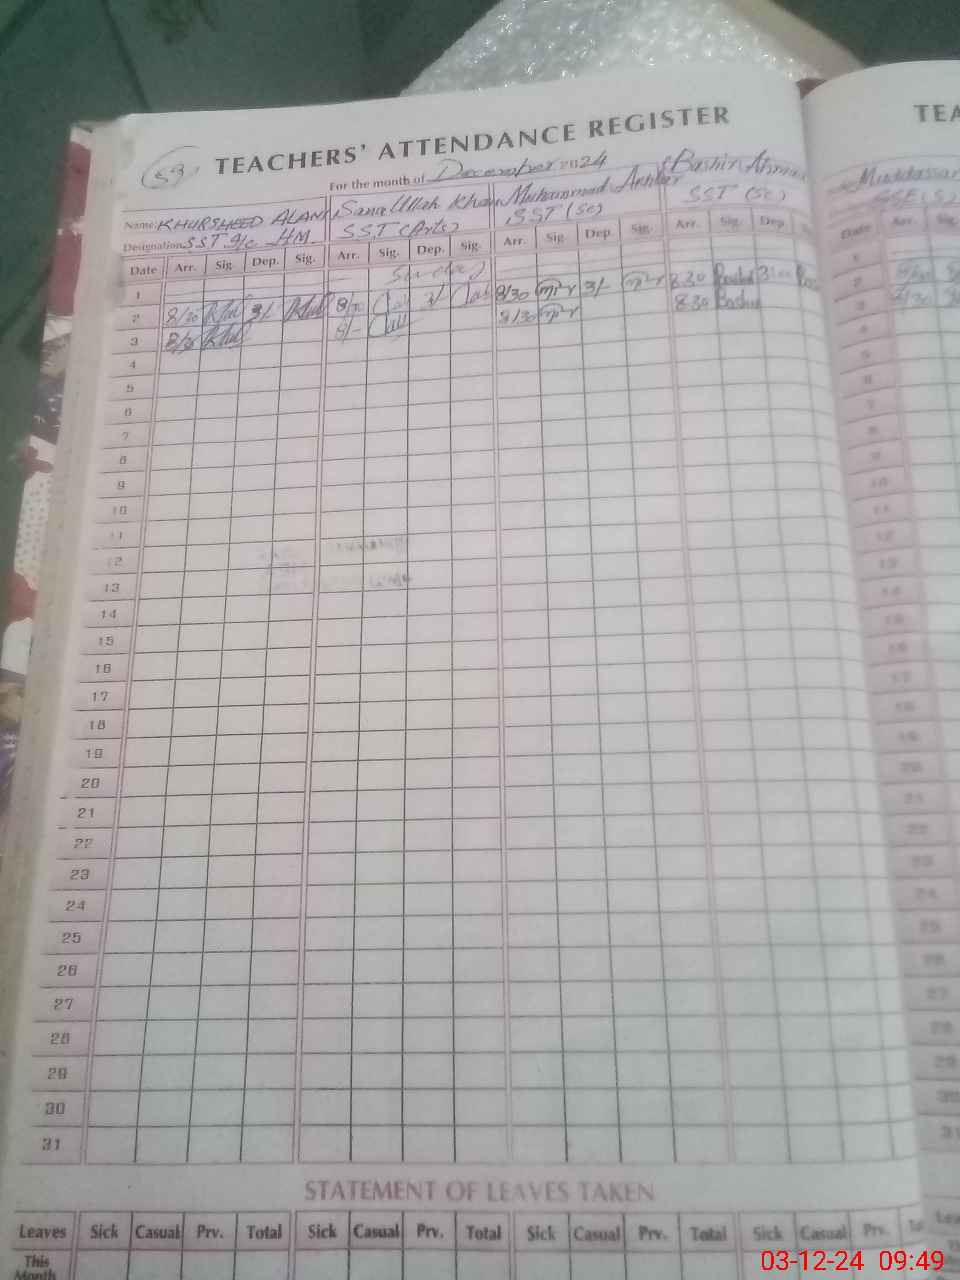 59
TEACHERS' ATTENDANCE REGISTER
For the month of December 2024
Name KHURSHEED ALAM Sana Ullah Khan Muhammad Bashir Ahmad
Designation SST I/c HM. SST (Arts) SST (Sc) SST (Sc)
Date Arr. Sig. Dep. Sig. Arr. Sig. Dep. Sig. Arr. Sig. Dep. Sig. Arr. Sig. Dep
1 Sunday
2 8/30 3/- 8/30 3/- 8/30 3/- 8 30 Bashir 3:00
3 8/30 8/- 8/30 8 30 Bashir
4
5
6
7
8
9
10
11
12
13
14
15
16
17
18
19
20
21
22
23
24
25
26
27
28
29
30
31
STATEMENT OF LEAVES TAKEN
Leaves Sick Casual Prv. Total Sick Casual Prv. Total Sick Casual Prv. Total Sick Casual Prv.
This
Month
TEA
Muddassar
SSE (Sc)
Date Arr. Sig.
1
2 8/30
3 8/30
03-12-24 09:49